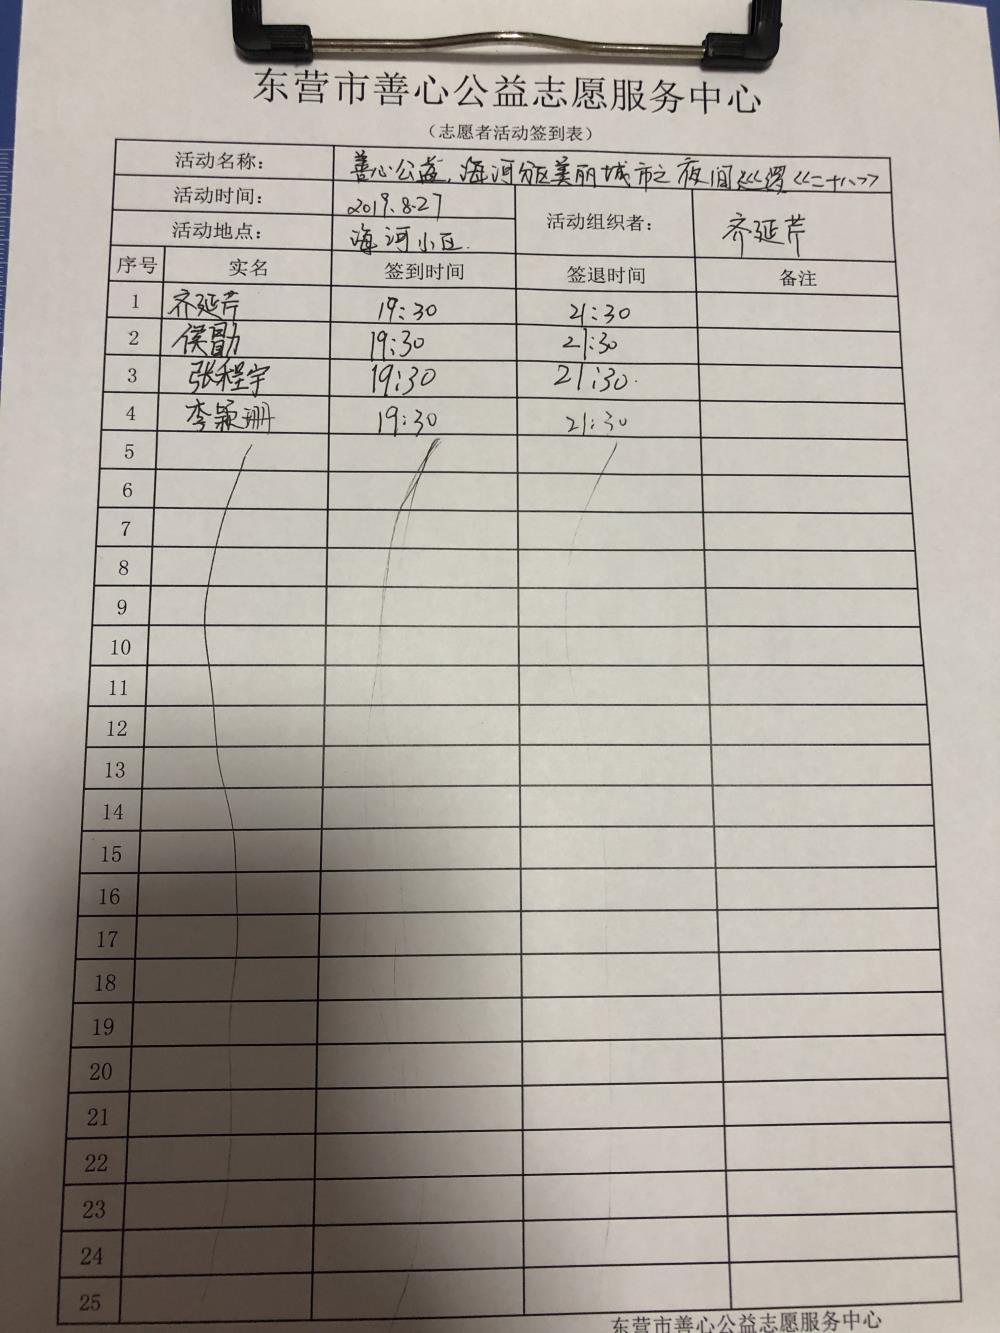 东营市善心公益志愿服务中心
（志愿者活动签到表）
活动名称： 善心公益,海河分区美丽城市之夜间巡逻《二十八》
活动时间： 2019.8.27 活动组织者： 齐延芹
活动地点： 海河小区.
序号 实名 签到时间 签退时间 备注
1 齐延芹 19:30 21:30
2 侯勖 19:30 21:30
3 张程宇 19:30 21:30.
4 李颖珊 19:30 21:30
5
6
7
8
9
10
11
12
13
14
15
16
17
18
19
20
21
22
23
24
25
东营市善心公益志愿服务中心